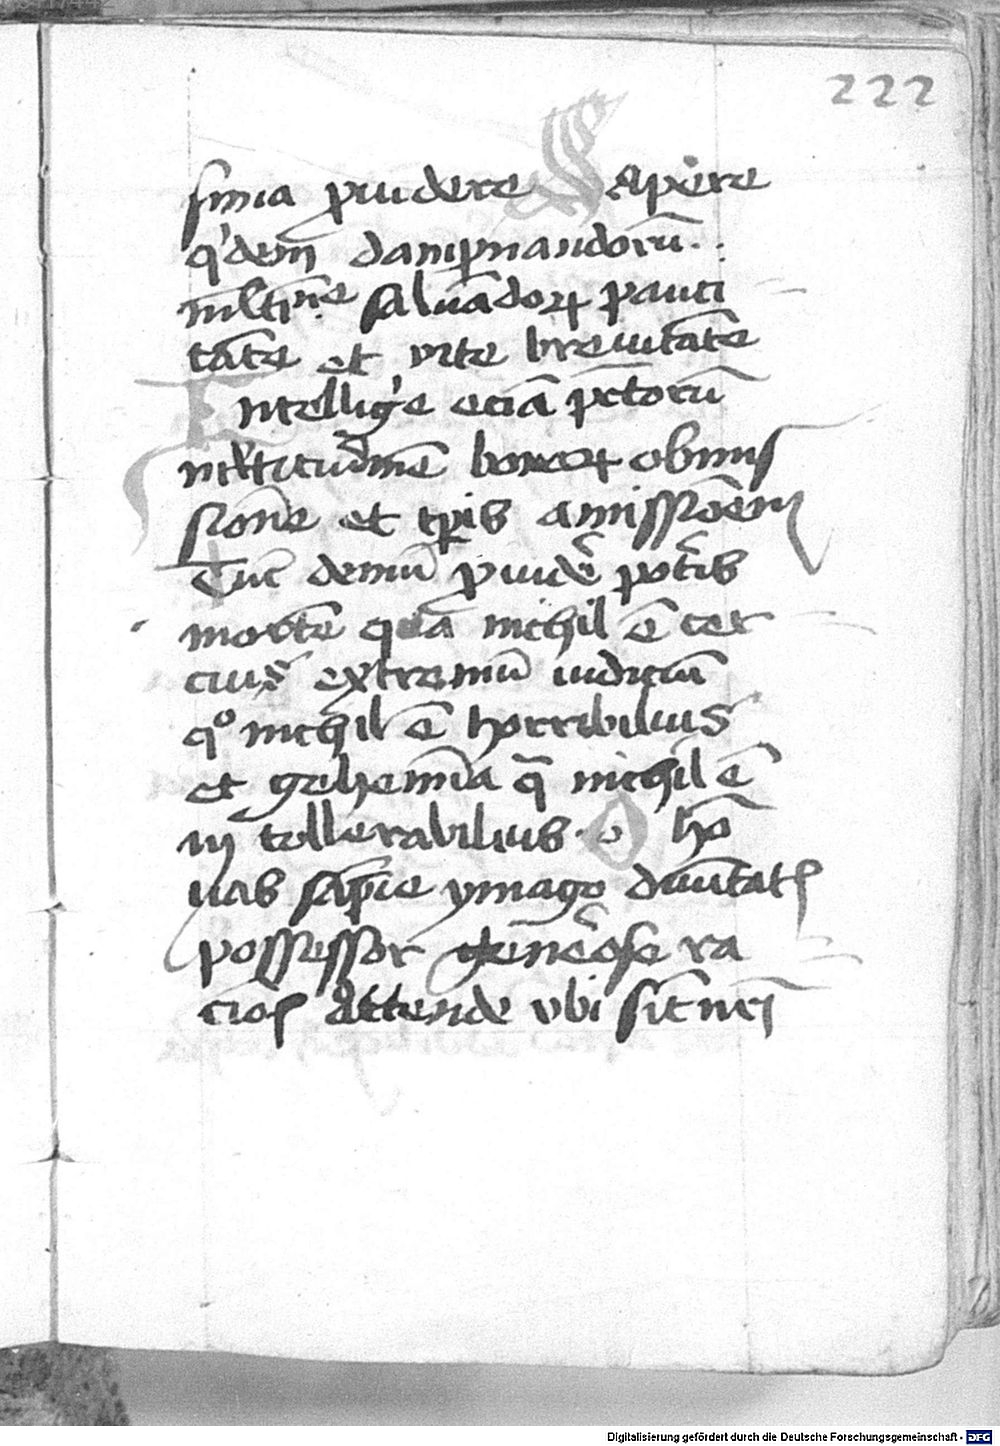 222
sima pꝛouidere Sapere
q'dem̄ dampnandoꝝ
m̄ltitudinē saluādoꝝ pauci
tātē et vite breuitatē
Intellig'e eciā p̄c̄torū
m̄ltitudinē bonoꝝ obmis
sionē et tp̄is amissiōem
Tūc demū ꝓuidē pot'is
mortē qua nichil ē cer
cius extremū iudiciū
q° nichil ē horribilius
et gehennā q̄ nichil ē
in tollerabilius · o ho
nas sap̄ie ymago diuītatꝭ
possessor gen̄ose ra
cioꝭ Attende vbi sit nc̄
Digitalisierung gefördert durch die Deutsche Forschungsgemeinschaft - DFG